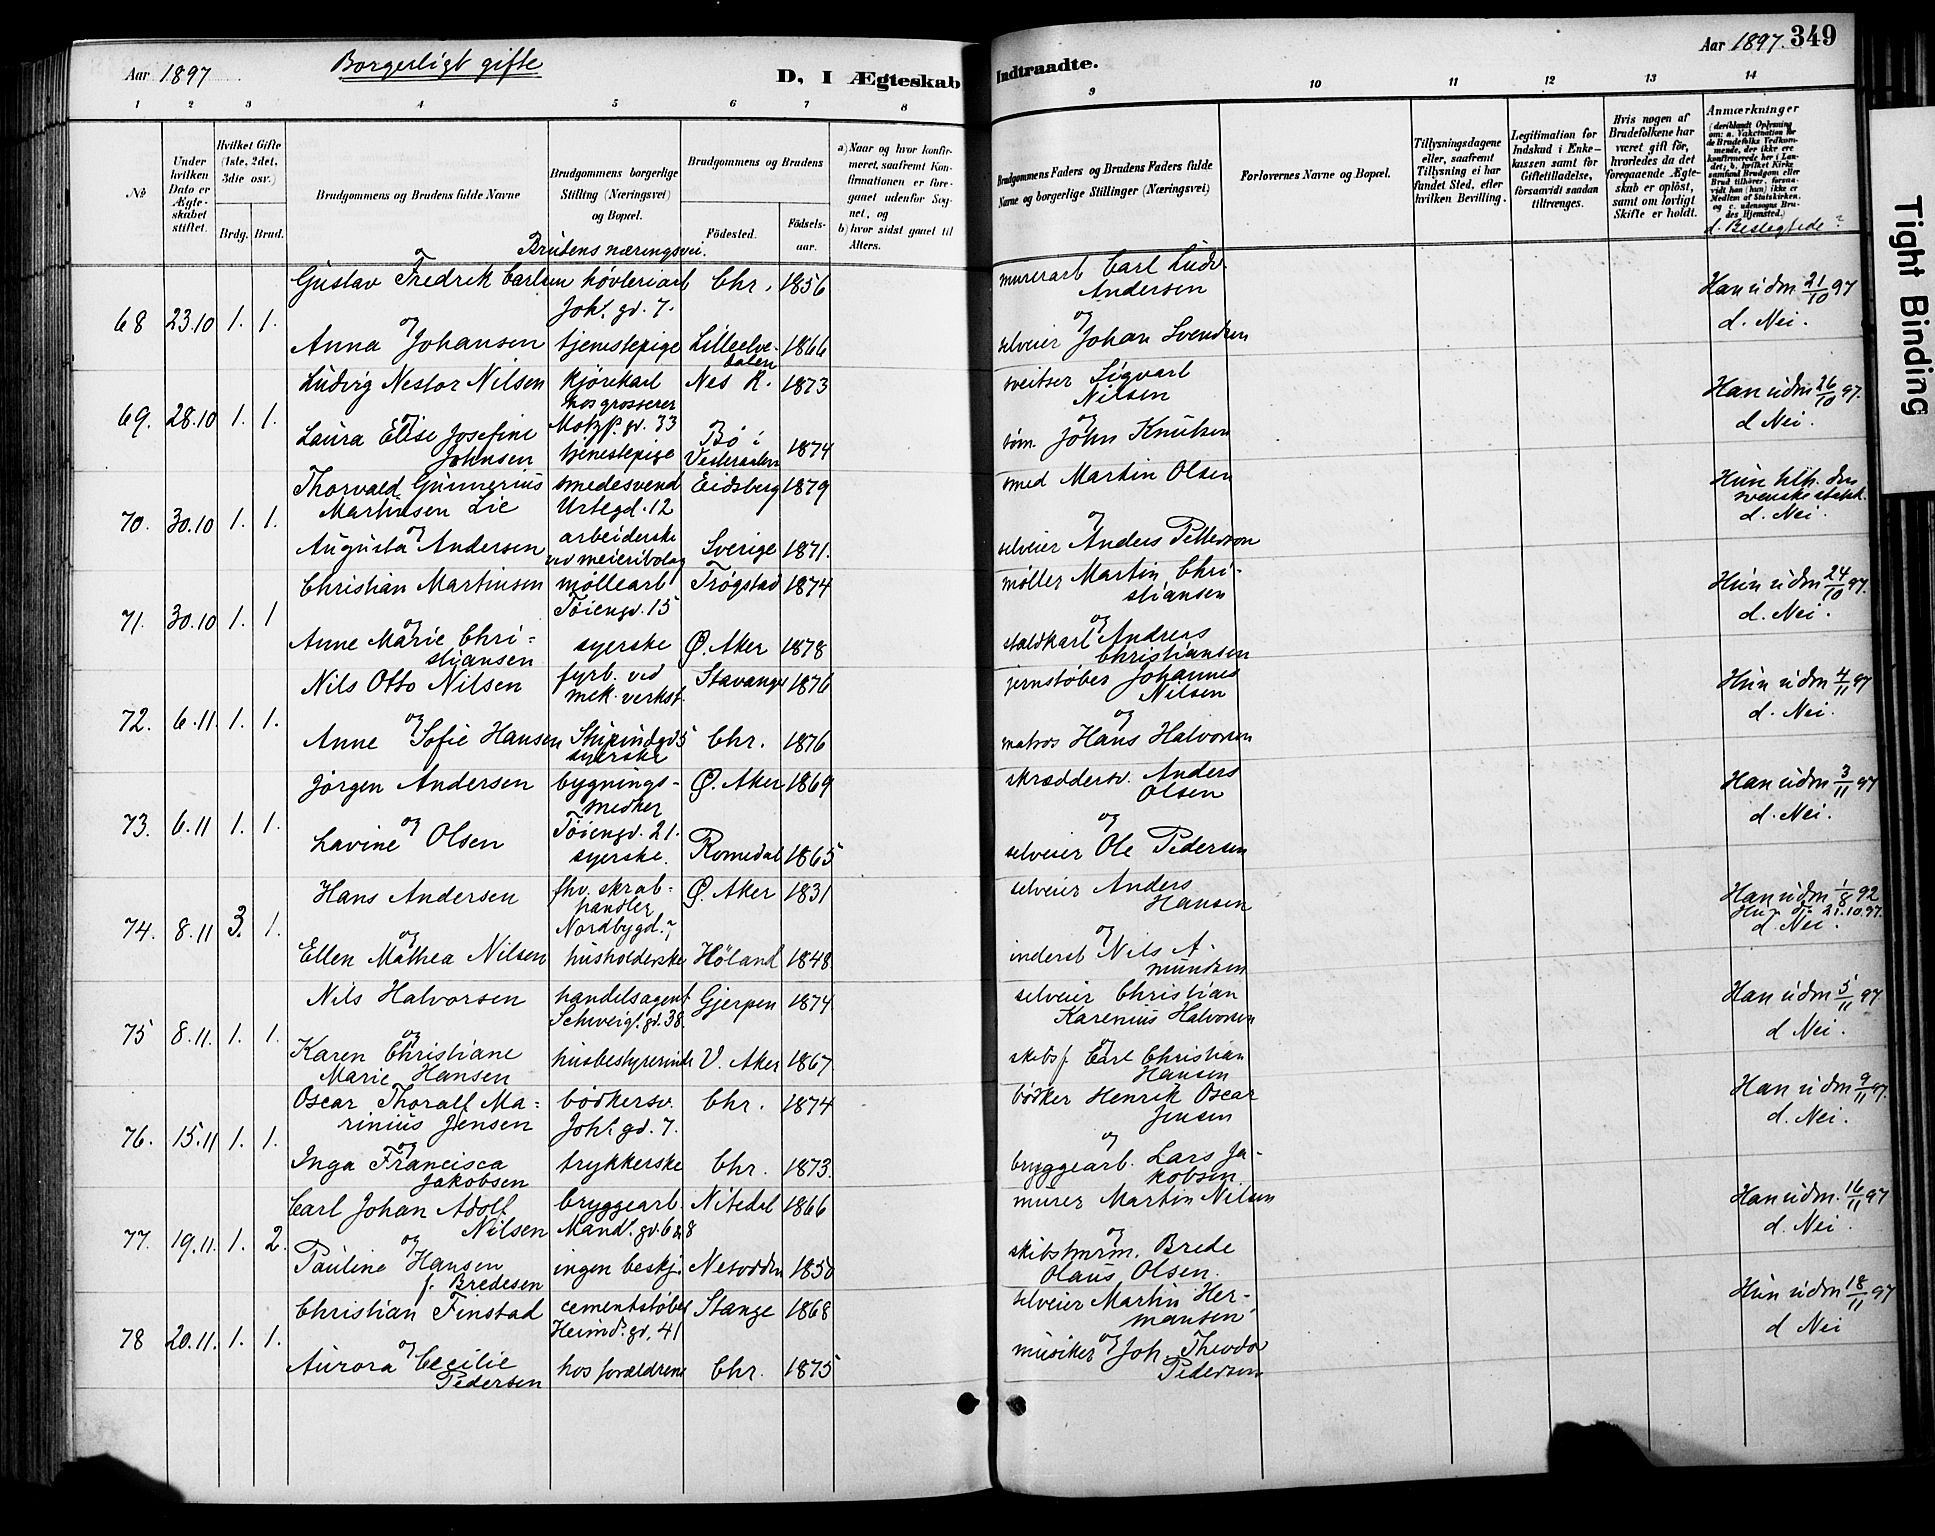 Aar 1897
Borgerligt gifte
D, I Ægteskab
Indtraadte.
Aar 1897. 349
1 2 3 4 5 6 7 8 9 10 11 12 13 14
№
Under hvilken Dato er Ægteskabet stiftet.
Hvilket Gifte (1ste, 2det, 3die osv.)
Brdg. Brud.
Brudgommens og Brudens fulde Navne
Brudgommens borgerlige Stilling (Næringsvei) og Bopæl.
og Brudens næringsvei.
Brudgommens og Brudens
Fødested.
Fødselsaar.
a) Naar og hvor konfirmeret, saafremt Konfirmationen er foregaaet udenfor Sognet, og
b) hvor sidst gaaet til Alters.
Brudgommens Faders og Brudens Faders fulde Navne og borgerlige Stillinger (Næringsvei)
Forlovernes Navne og Bopæl.
Tillysningsdagene eller, saafremt Tillysning ei har fundet Sted, efter hvilken Bevilling.
Legitimation for Indskud i Enkekassen samt for Giftetilladelse, forsaavidt saadan tiltrænges.
Hvis nogen af Brudefolkene har været gift før, hvorledes da det foregaaende Ægteskab er opløst, samt om lovligt Skifte er holdt.
Anmærkninger
(deriblandt Oplysning om: a. Vakcination for de Brudefolks Vedkommende, der ikke ere konfirmerede her i Landet; b. hvilket Kirkesamfund Brudgom eller Brud tilhører, forsaavidt han (hun) ikke er Medlem af Statskirken, og c. udensogns Brudes Hjemsted.)
d. Beslegtede?
Gustav Fredrik Carlsen høvleriarb Chr. 1856 murerarb Carl Ludv. Andersen
68 23.10 1. 1. og Joh. gd. 7. Han udm 21/10 97
d. Nei.
Anna Johansen tjenestepige Lilleelvedalen 1866 selveier Johan Svendsen
Ludvig Nestor Nilsen kjørekarl Nes R. 1873 sveitser Sigvart Nilsen
69. 28.10 1. 1. og hos grosserer Motzf. gd. 33 Han udm 26/10 97.
d Nei.
Laura Elise Josefine Johnsen tjenestepige Bø i Vesteraalen 1874 tøm. John Knutsen
Thorvald Gunnerius Martinsen Lie smedesvend Urtegd. 12 Eidsberg 1879 smed Martin Olsen
70. 30.10 1. 1. og Hun tilh. den svenske statsk.
d. Nei.
Augusta Andersen arbeiderske ved meieribolag Sverige 1871. selveier Anders Petterson
Christian Martinsen møllearb Tøiengd. 15 Trøgstad 1874 møller Martin Christiansen
71. 30.10 1. 1 og Hun udm 24/10 97.
d. Nei.
Anne Marie Christiansen syerske Ø. Aker 1878 staldkarl Andreas Christiansen
Nils Otto Nilsen fyrb. ved mek. verkst. Stavanger 1876 jernstøber Johannes Nilsen
72. 6.11. 1. 1. og Hun udm 4/11 97
d. Nei.
Anne Sofie Hansen syerske Chr. 1876 matros Hans Halvorsen
Jørgen Andersen bygningssnedker Tøiengd. 21. Ø. Aker 1869 skræddersv. Anders Olsen
73. 6.11 1. 1. og Han udm 3/11 97
d. Nei.
Lavine Olsen syerske. Romedal 1865 selveier Ole Pedersen
Hans Andersen fhv. skraphandler Nordbygd. 7 Ø. Aker 1831 selveier Anders Hansen
74. 8.11 3. 1. og Han udm 1/8 92
Hun do 21.10.97.
d. Nei.
Ellen Mathea Nilsen husholderske Høland 1848. inderst Nils Amundsen
Nils Halvorsen handelsagent Schweig. gd. 38. Gjerpen 1874 selveier Christian Karenius Halvorsen
75 8.11. 1. 1. og Han udm 5/11 97.
d Nei.
Karen Christiane Marie Hansen husbestyrerinde V. Aker 1867. skibsf. Carl Christian Hansen
Oscar Thoralf Marinius Jensen bødkersv. Joh. gd. 7. Chr. 1874 bødker Henrik Oscar Jensen
76. 15.11 1. 1. og Han udm 9/11 97.
d. Nei.
Inga Francisca Jakobsen trykkerske Chr. 1873. bryggearb. Lars Jakobsen.
Carl Johan Adolf Nilsen bryggearb. Mandl. gd. 6 &amp; 8 Nitedal 1866 murer Martin Nilsen
77. 19.11. 1. 2. og Han udm. 16/11 97
d. Nei.
Pauline Hansen f. Bredesen ingen beskj. Nesodden 1850 skibstmrm. Brede Olaus Olsen.
Christian Finstad cementstøber Heimd. gd. 41 Stange 1868 selveier Martin Hermansen
78 20.11. 1. 1. og Hun udm 18/11 97
d Nei
Aurora Cecilie Pedersen hos forældrene Chr. 1875 musiker Joh. Theodor Pedersen
Tight Binding